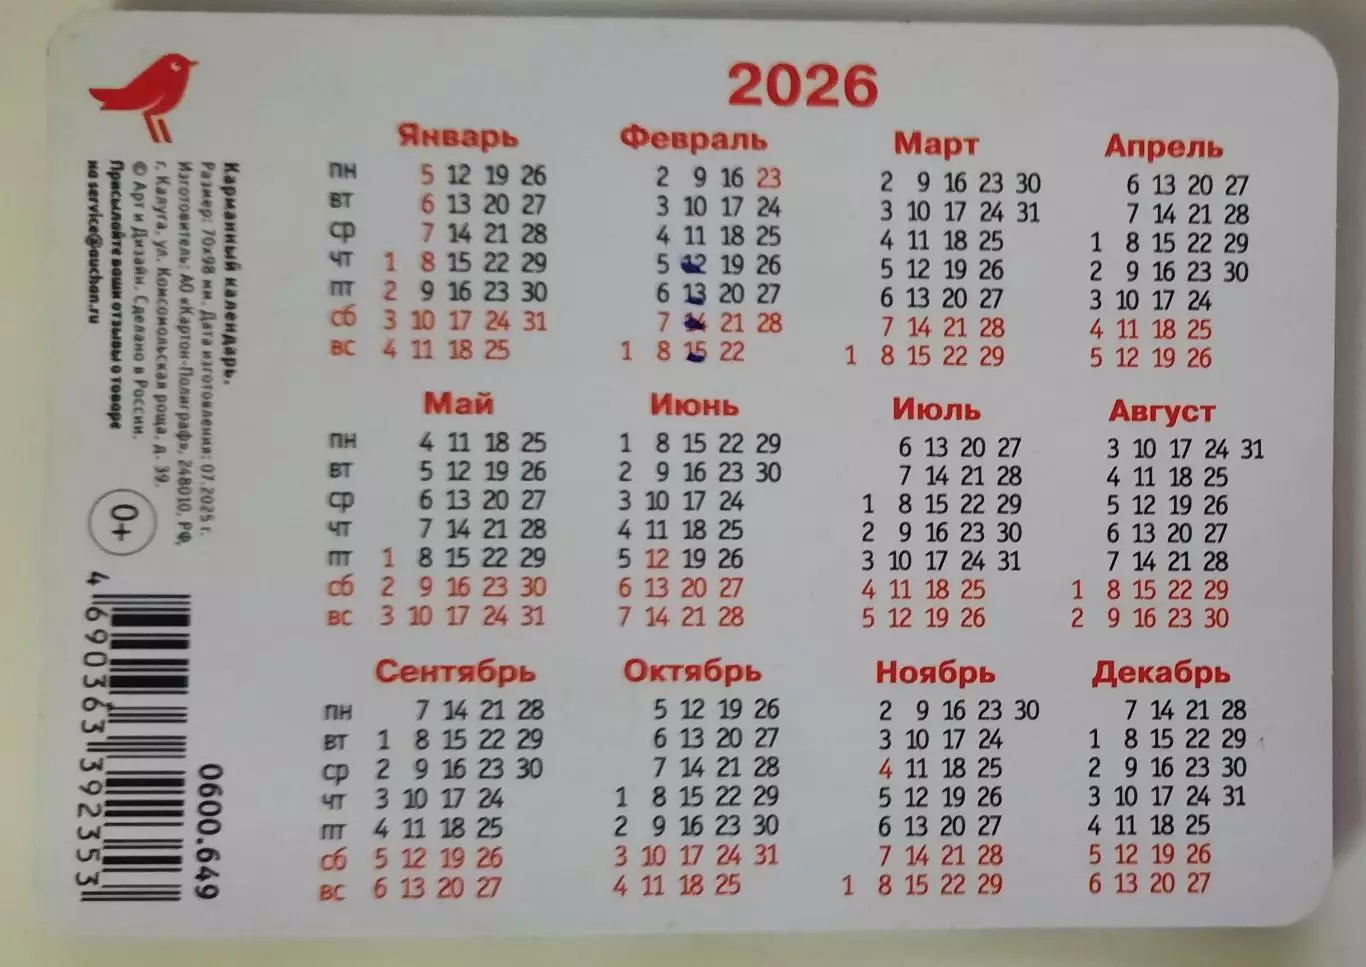 2026
Январь Февраль Март Апрель
пн 5 12 19 26 2 9 16 23 2 9 16 23 30 6 13 20 27
вт 6 13 20 27 3 10 17 24 3 10 17 24 31 7 14 21 28
ср 7 14 21 28 4 11 18 25 4 11 18 25 1 8 15 22 29
чт 1 8 15 22 29 5 12 19 26 5 12 19 26 2 9 16 23 30
пт 2 9 16 23 30 6 13 20 27 6 13 20 27 3 10 17 24
сб 3 10 17 24 31 7 14 21 28 7 14 21 28 4 11 18 25
вс 4 11 18 25 1 8 15 22 1 8 15 22 29 5 12 19 26
Май Июнь Июль Август
пн 4 11 18 25 1 8 15 22 29 6 13 20 27 3 10 17 24 31
вт 5 12 19 26 2 9 16 23 30 7 14 21 28 4 11 18 25
ср 6 13 20 27 3 10 17 24 1 8 15 22 29 5 12 19 26
чт 7 14 21 28 4 11 18 25 2 9 16 23 30 6 13 20 27
пт 1 8 15 22 29 5 12 19 26 3 10 17 24 31 7 14 21 28
сб 2 9 16 23 30 6 13 20 27 4 11 18 25 1 8 15 22 29
вс 3 10 17 24 31 7 14 21 28 5 12 19 26 2 9 16 23 30
Сентябрь Октябрь Ноябрь Декабрь
пн 7 14 21 28 5 12 19 26 2 9 16 23 30 7 14 21 28
вт 1 8 15 22 29 6 13 20 27 3 10 17 24 1 8 15 22 29
ср 2 9 16 23 30 7 14 21 28 4 11 18 25 2 9 16 23 30
чт 3 10 17 24 1 8 15 22 29 5 12 19 26 3 10 17 24 31
пт 4 11 18 25 2 9 16 23 30 6 13 20 27 4 11 18 25
сб 5 12 19 26 3 10 17 24 31 7 14 21 28 5 12 19 26
вс 6 13 20 27 4 11 18 25 1 8 15 22 29 6 13 20 27
Карманный календарь.
Размер: 70х98 мм. Дата изготовления: 07.2025 г.
Изготовитель: АО «Картон-Полиграф», 248010, РФ,
г. Калуга, ул. Комсомольская роща, д. 39.
© Арт и Дизайн. Сделано в России.
Присылайте ваши отзывы о товаре
на service@auchan.ru
0+
4 690363 392353
0600.649